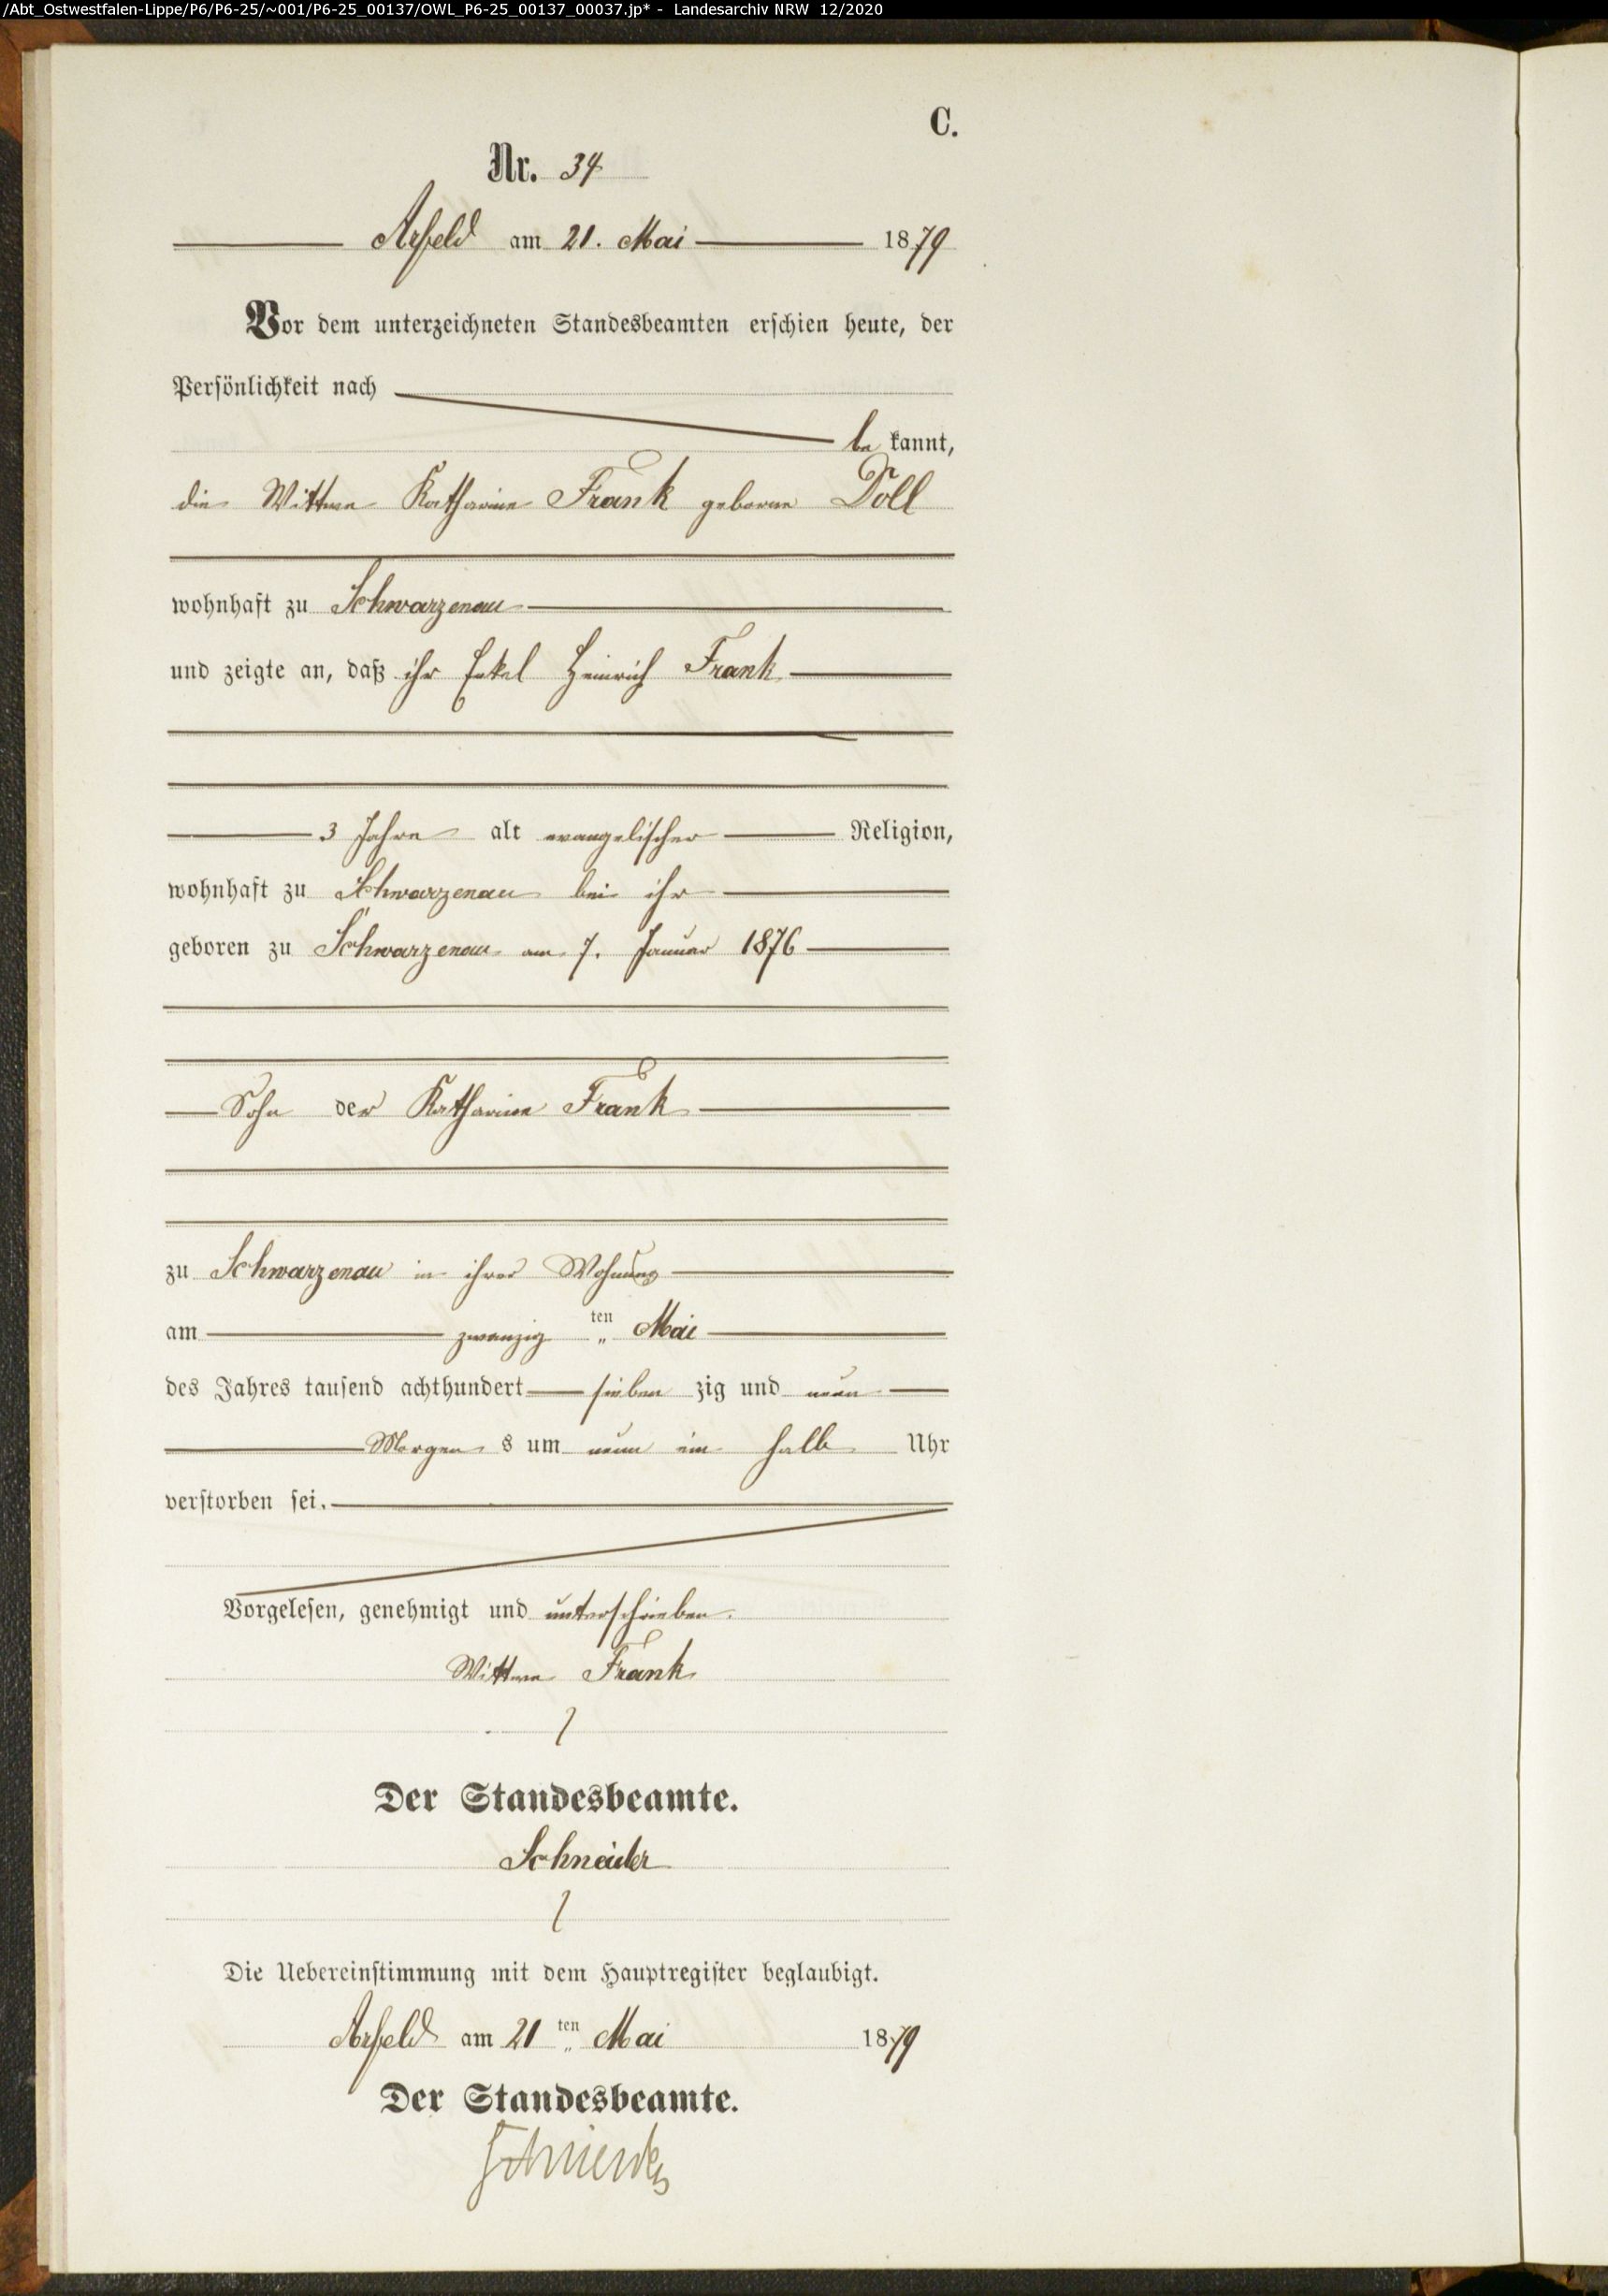 /Abt_Ostwestfalen-Lippe/P6/P6-25/~001/P6-25_00137/OWL_P6-25_00137_00037.jp* - Landesarchiv NRW 12/2020
C.
Nr. 34
Arfeld am 21. Mai 1879
Vor dem unterzeichneten Standesbeamten erschien heute, der
Persönlichkeit nach
be kannt,
die Wittwe Katharine Frank geborne Doll
wohnhaft zu Schwarzenau
und zeigte an, daß ihr Enkel Heinrich Frank
3 Jahre alt evangelischer Religion,
wohnhaft zu Schwarzenau bei ihr
geboren zu Schwarzenau am 7. Januar 1876
Sohn der Katharine Frank
zu Schwarzenau in ihrer Wohnung
am zwanzig ten Mai
des Jahres tausend achthundert sieben zig und neun
Morgen s um neun ein halb Uhr
verstorben sei.
Vorgelesen, genehmigt und unterschrieben.
Wittwe Frank
Der Standesbeamte.
Schneider
Die Uebereinstimmung mit dem Hauptregister beglaubigt.
Arfeld am 21 ten Mai 1879
Der Standesbeamte.
Schneider